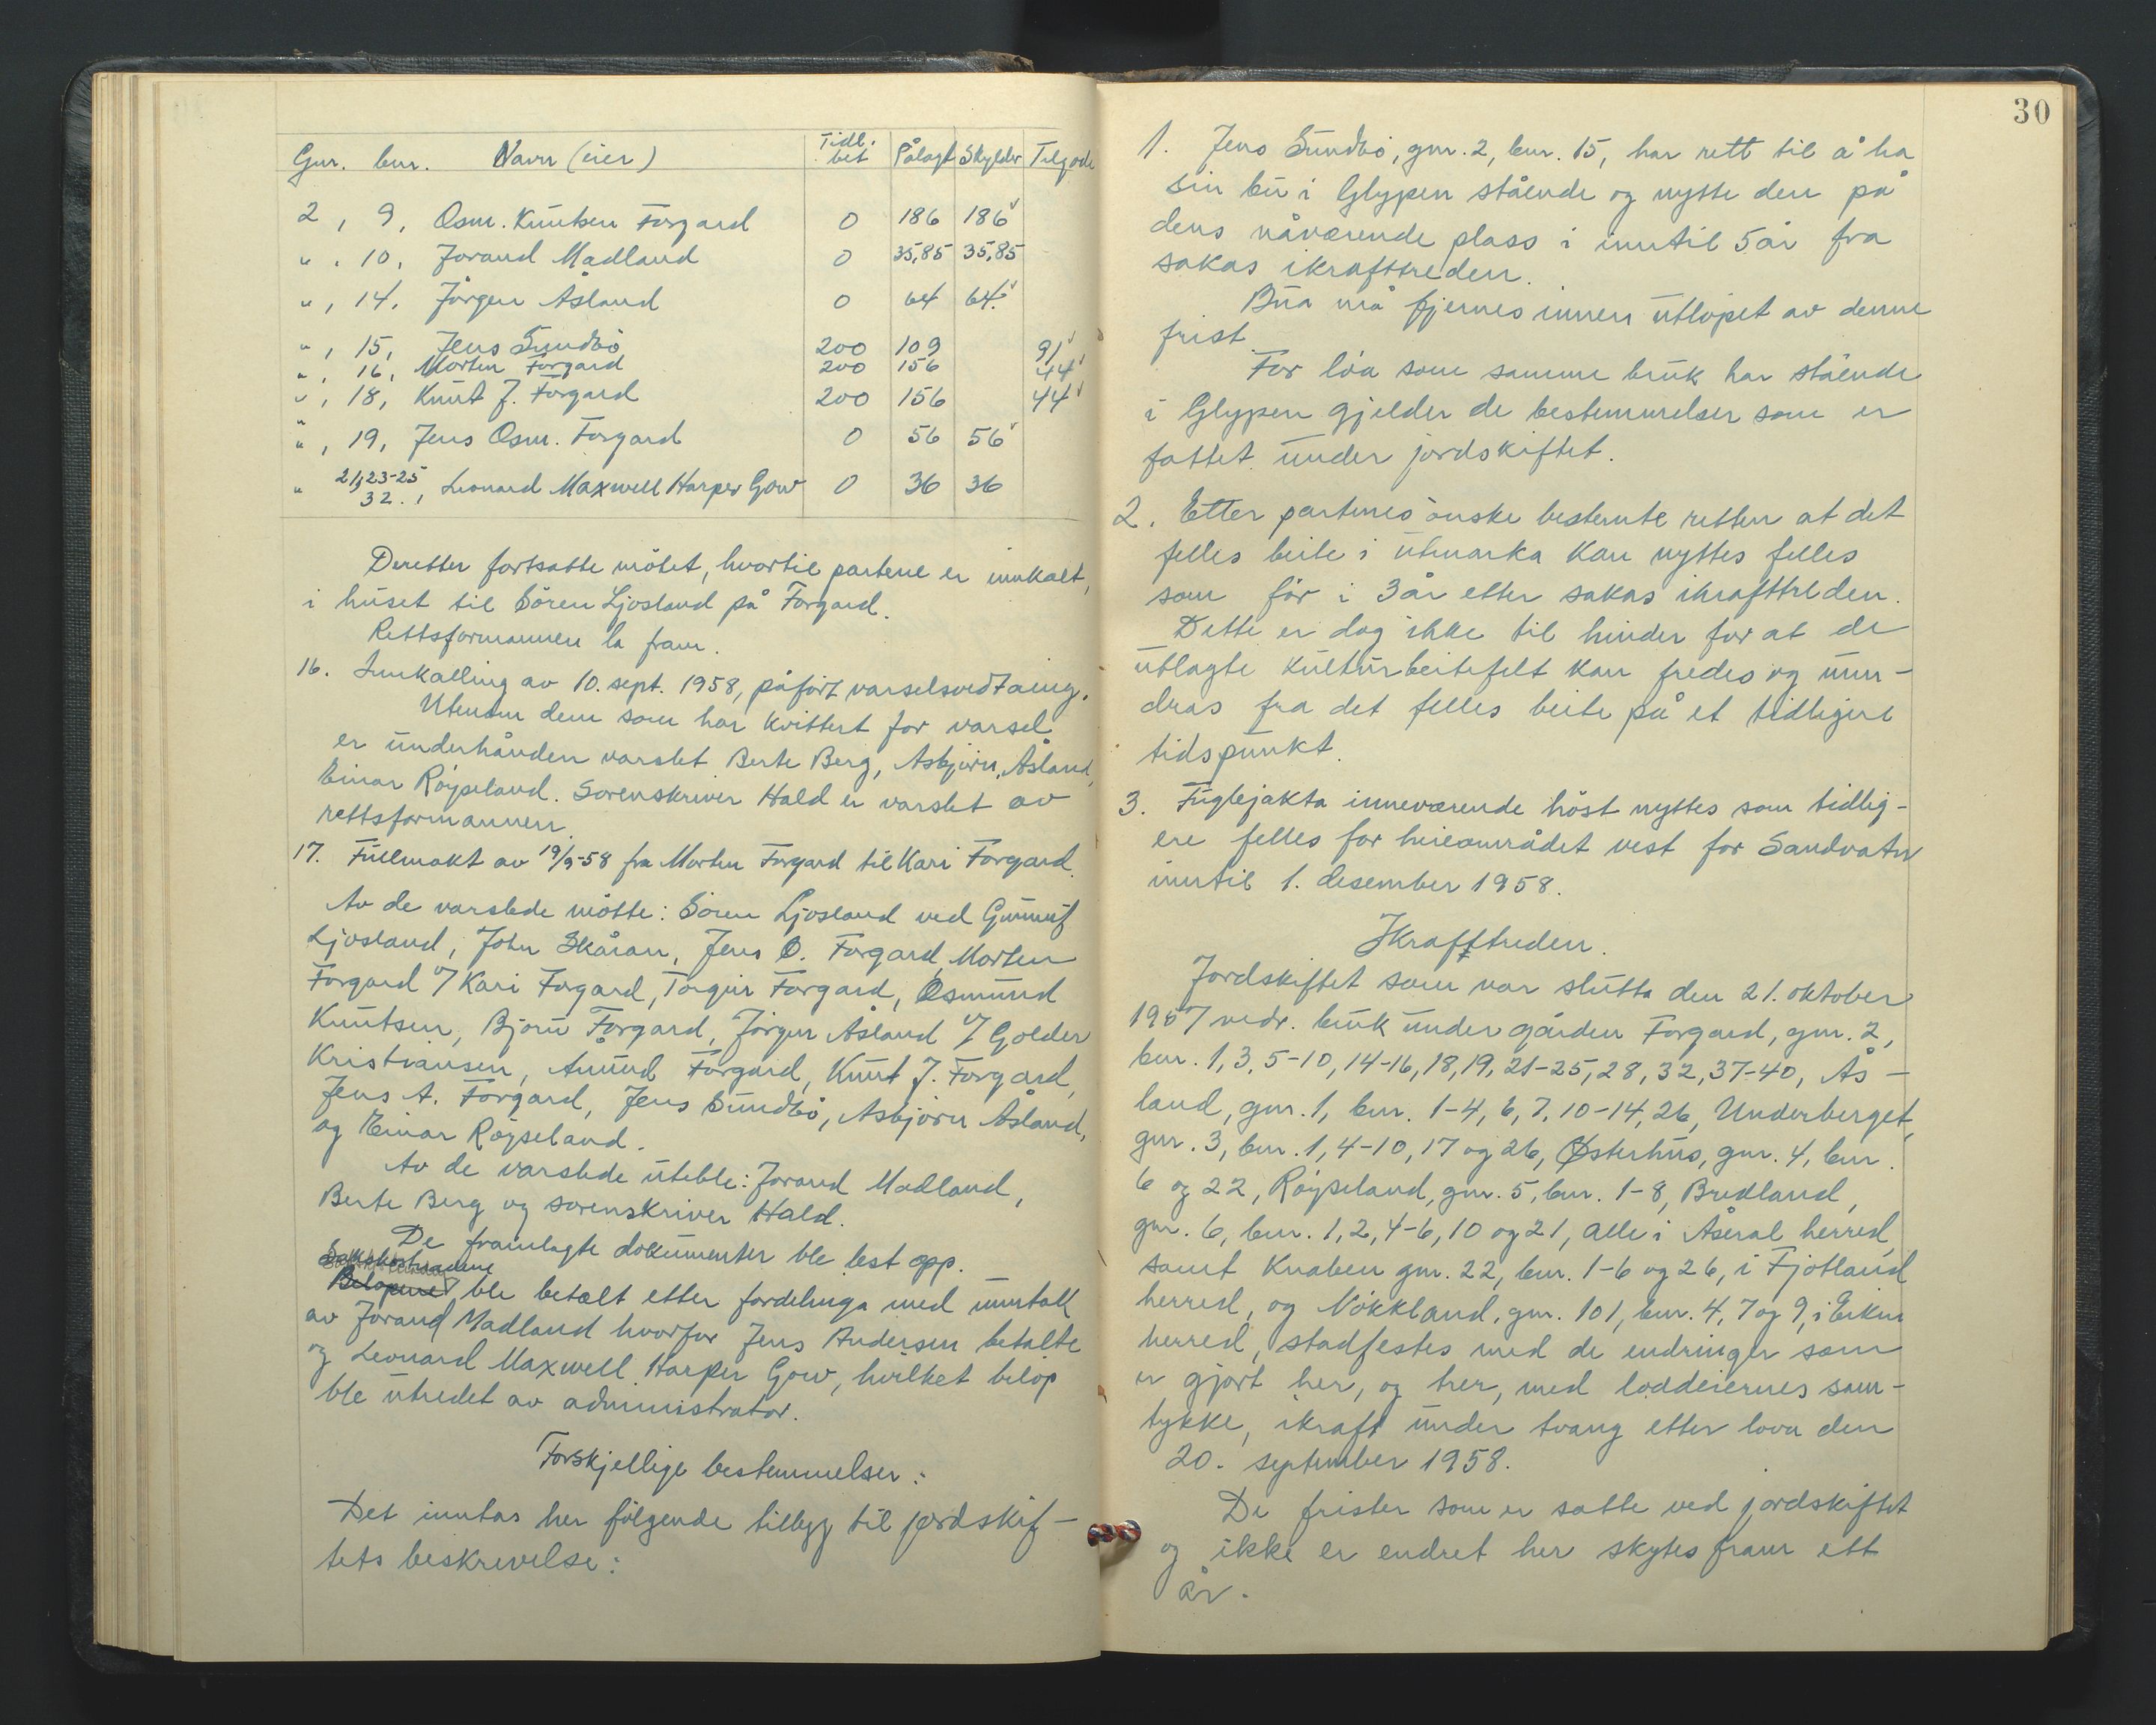 Gnr. bnr. Navn (eier) Tidl. bet Pålagt Skylder Tilgode
2, 9, Osm. Knutsen Forgard 0 186 186
", 10, Jorand Madland 0 35,85 35,85
", 14, Jörgen Åsland 0 64 64
", 15, Jens Sundbö 200 109 91
", 16, Morten Forgard 200 156 44
", 18, Knut J. Forgard 200 156 44
", 19, Jens Osm. Forgard 0 56 56
" 21, 23-25 32., Leonard Maxwell Harper Gow 0 36 36
Deretter fortsatte mötet, hvortil partene er innkalt,
i huset til Sören Ljosland på Forgard.
Rettsformannen la fram.
16. Innkalling av 10. sept. 1958, påfört varselsvedtaing.
Utenom dem som har kvittert for varsel
er underhånden varslet Berte Berg, Asbjörn Åsland,
Einar Röyseland. Sorenskriver Hald er varslet av
rettsformannen.
17. Fullmakt av 19/9-58 fra Morten Forgard til Kari Forgard.
Av de varslede mötte: Sören Ljosland ved Gunnuf
Ljosland, John Skåran, Jens O. Forgard, Morten
Forgard v/ Kari Forgard, Torgeir Forgard, Osmund
Knutsen, Bjorn Forgard, Jörgen Åsland v/ Golder
Kristiansen, Anund Forgard, Knut J. Forgard,
Jens A. Forgard, Jens Sundbö, Asbjörn Åsland,
og Einar Röyseland.
Av de varslede uteble: Jorand Madland,
Berte Berg og sorenskriver Hald.
De framlagte dokumenter ble lest opp.
Sakskostnadene
Belöpene ble betalt etter fordelinga med unntak
av Jorand Madland hvorfor Jens Andersen betalte
og Leonard Maxwell Harper Gow, hvilket belöp
ble utredet av administrator.
Forskjellige bestemmelser:
Det inntas her fölgende tillegg til jordskif-
tets beskrivelse:
30
1. Jens Sundbö, gnr. 2, bnr. 15, har rett til å ha
sin bu i Glypen stående og nytte den på
dens nåværende plass i inntil 5 år fra
sakas ikrafttreden.
Bua må fjernes innen utlöpet av denne
frist.
For löa som samme bruk har stående
i Glypen gjelder de bestemmelser som er
fattet under jordskiftet.
2. Etter partenes önske bestemte retten at det
felles beite i utmarka kan nyttes felles
som för i 3 år etter sakas ikrafttreden.
Dette er dog ikke til hinder for at de
utlagte kulturbeitefelt kan fredes og unn-
dras fra det felles beite på et tidligere
tidspunkt.
3. Fuglejakta inneværende höst nyttes som tidlig-
ere felles for heieområdet vest for Sandvatn
inntil 1. desember 1958.
Ikrafttreden.
Jordskiftet som var slutta den 21. oktober
1957 vedr. bruk under gården Forgard, gnr. 2,
bnr. 1, 3, 5-10, 14-16, 18, 19, 21-25, 28, 32, 37-40, Ås-
land, gnr. 1, bnr. 1-4, 6, 7, 10-14, 26, Underberget,
gnr. 3, bnr. 1, 4-10, 17 og 26, Østerhus, gnr. 4, bnr.
6 og 22, Röyseland, gnr. 5, bnr. 1-8, Bredland,
gnr. 6, bnr. 1, 2, 4-6, 10 og 21, alle i Åseral herred,
samt Knaben gnr. 22, bnr. 1-6 og 26, i Fjotland
herred, og Nökkland, gnr. 101, bnr. 4, 7 og 9, i Eiken
herred, stadfestes med de endringer som
er gjort her, og trer, med loddeiernes sam-
tykke, ikraft under tvang etter lova den
20. september 1958.
De frister som er satte ved jordskiftet
og ikke er endret her skytes fram ett
år.